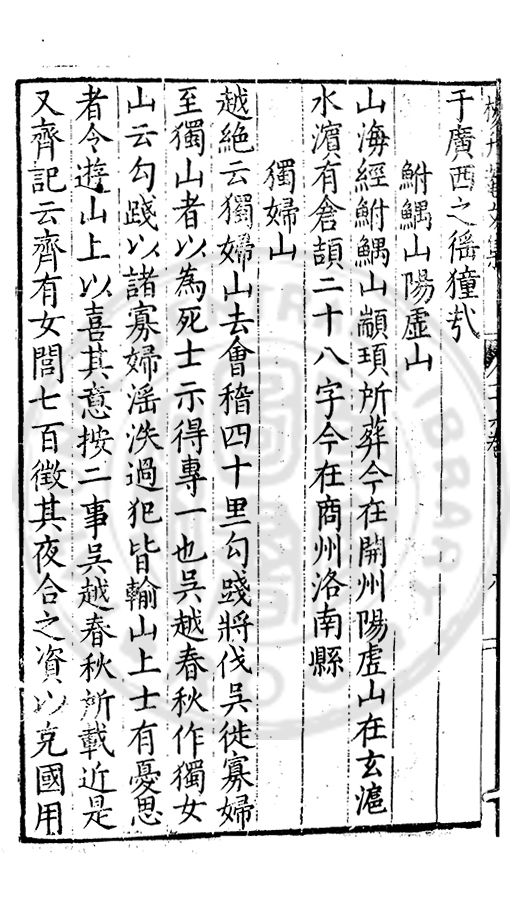 于廣西之徭獞哉
鮒鰅山陽虛山
山海經鮒鰅山顓頊所葬今在開州陽虛山在玄滬
水濵有倉頡二十八字今在商州洛南縣
獨婦山
越絶云獨婦山去會稽四十里勾踐將伐吳徙寡婦
至獨山者以為死士示得專一也吳越春秋作獨女
山云勾踐以諸寡婦滛泆過犯皆輸山上士有憂思
者令遊山上以喜其意按二事吳越春秋所載近是
又齊記云齊有女閭七百徵其夜合之資以充國用